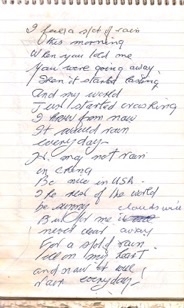 I funs a spot of rain
this morning
When you told me
You were going away.
Then it started
and my world
Just started cracking
I know from now
It would rain
everyday-
It may not rain
in China
Be nice in USA.
The rest of the world
be sunny clouds
But for me
never clear away
For a spot of rain
fell on my
and now it will
rain everyday!